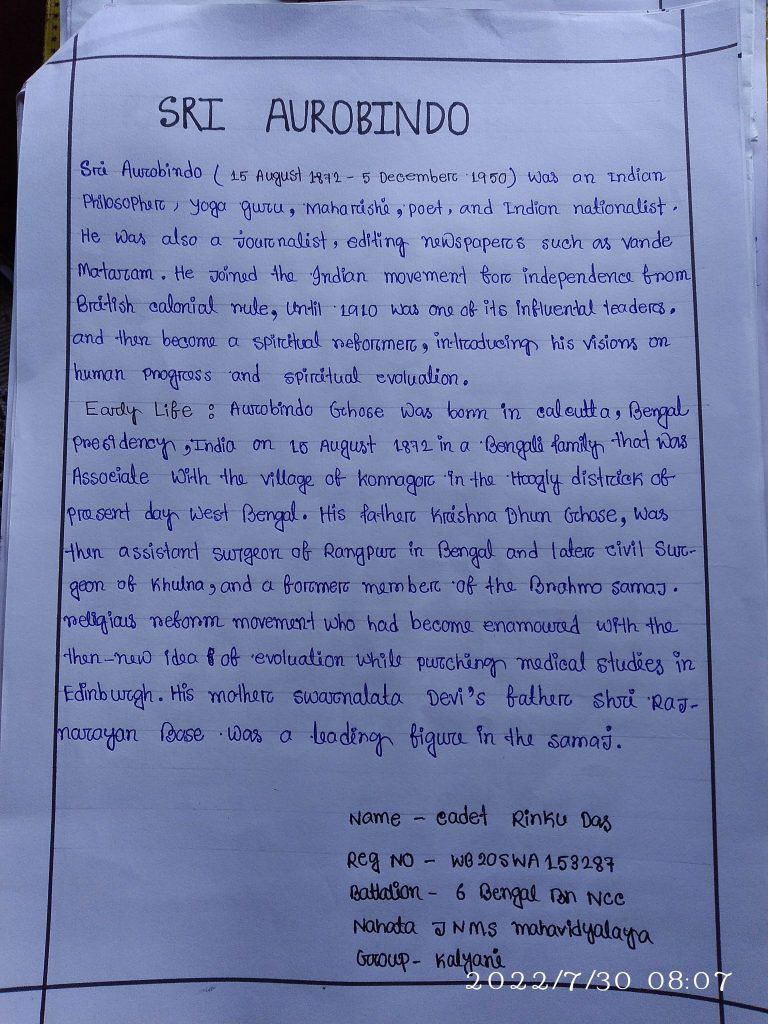 SRI AUROBINDO
Sri Aurobindo (15 August 1872 - 5 December 1950) was an Indian
Philosopher, yoga guru, maharishi, poet, and Indian nationalist.
He was also a journalist, editing newspapers such as vande
Mataram. He joined the Indian movement for independence from
British colonial rule, until 1910 was one of its influental leaders.
and then become a spiritual reformer, introducing his visions on
human progress and spiritual evaluation.
Early Life : Aurobindo Ghose was born in calcutta, Bengal
presidency, India on 15 August 1872 in a Bengali family that was
Associate with the village of konnagor in the Hoogly districk of
present day west Bengal. His father Krishna Dhun Ghose, was
then assistant surgeon of Rangpur in Bengal and later civil Sur-
geon of Khulna, and a former member of the Brahmo samaj.
religious reform movement who had become enamoured with the
then-new idea of evaluation while purching medical studies in
Edinburgh. His mother swarnalata Devi's father shri Raj-
narayan Base was a leading figure in the samaj.
Name - cadet Rinku Das
Reg NO - WB20SWA153287
Battalion - 6 Bengal Bn NCC
Nahata JNMS mahavidyalaya
Group - Kalyani
2022/7/30 08:07